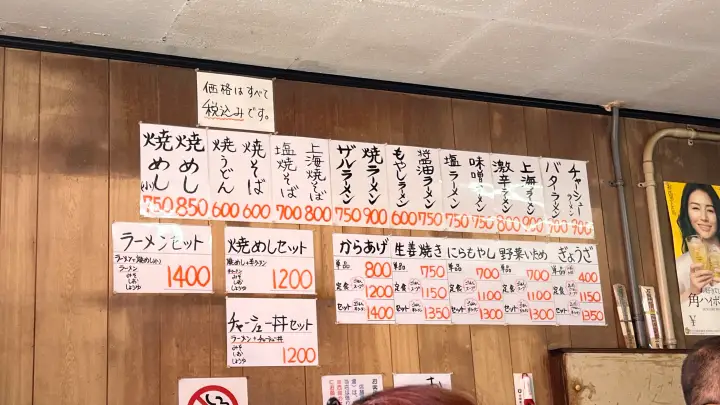 価格はすべて
税込みです。
チャーシューメン 900
バターラーメン 900
上海ラーメン 900
激辛ラーメン 800
味噌ラーメン 750
塩ラーメン 750
醤油ラーメン 750
もやしラーメン 600
焼ラーメン 900
ザルラーメン 750
上海焼そば 800
塩焼そば 700
焼そば 600
焼うどん 600
焼めし 850
焼めし(小) 750
ラーメンセット
ラーメン
みそ
しお
しょうゆ
1400
焼めしセット
みそ
しお
しょうゆ
1200
チャーシュー丼セット
みそ
しお
しょうゆ
1200
からあげ 生姜焼き にらもやし 野菜いため ぎょうざ
単品 800 単品 750 単品 700 単品 700 単品 400
定食 1200 定食 1150 定食 1100 定食 1100 定食 1150
セット 1400 セット 1350 セット 1300 セット 1300 セット 1350
角ハイボ
¥